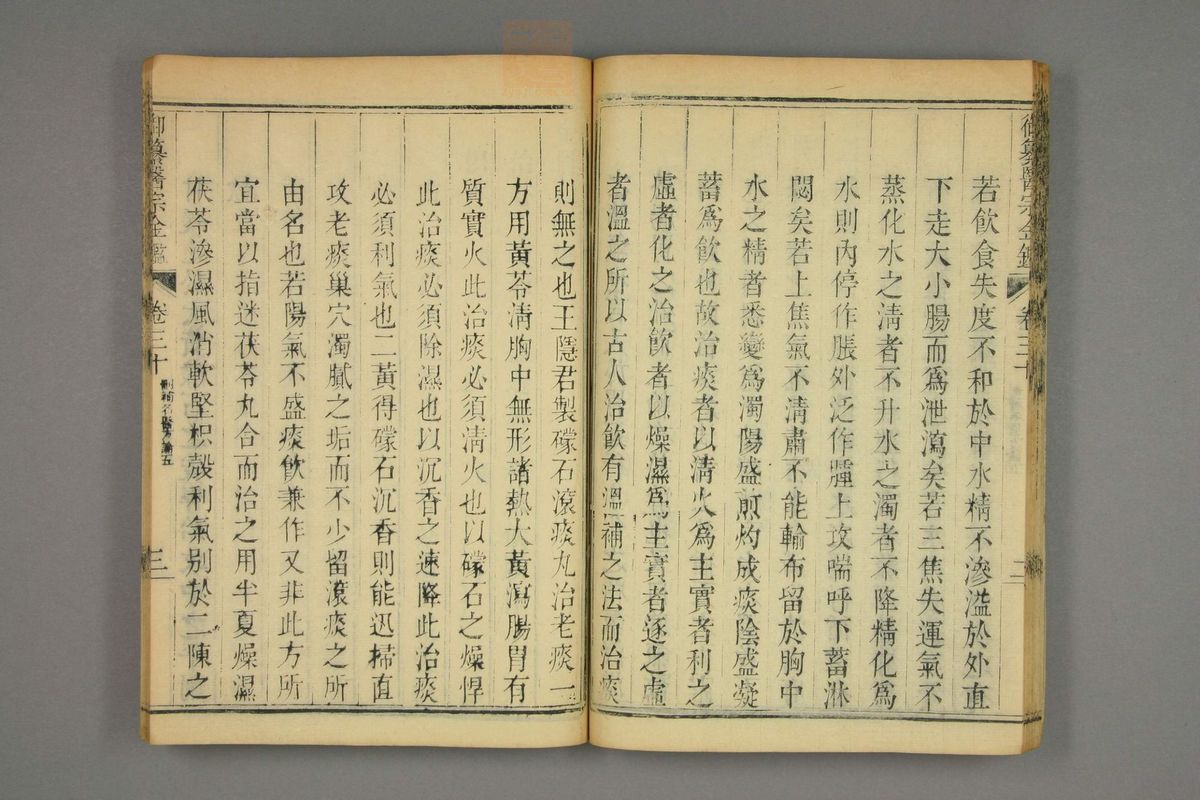 御纂醫宗金鑑 卷三十 二
若飲食失度不和於中水精不滲溢於外直
下走大小腸而爲泄瀉矣若三焦失運氣不
蒸化水之清者不升水之濁者不降精化爲
水則內停作脹外泛作腫上攻喘呼下蓄淋
悶矣若上焦氣不清肅不能輸布留於胸中
水之精者悉變爲濁陽盛煎灼成痰陰盛凝
蓄爲飲也故治痰者以清火爲主實者利之
虛者化之治飲者以燥濕爲主實者逐之虛
者溫之所以古人治飲有溫補之法而治痰
則無之也王隱君製礞石滾痰丸治老痰一
方用黃芩淸胸中無形諸熱大黃瀉腸胃有
質實火此治痰必須淸火也以礞石之燥悍
此治痰必須除濕也以沉香之速降此治痰
必須利氣也二黃得礞石沉香則能迅掃直
攻老痰巢穴濁膩之垢而不少留滾痰之所
由名也若陽氣不盛痰飲兼作又非此方所
宜當以指迷茯苓丸合而治之用半夏燥濕
茯苓滲濕風消軟堅枳殼利氣别於二陳之
御纂醫宗金鑑 卷三十 刪補名醫方論五 三